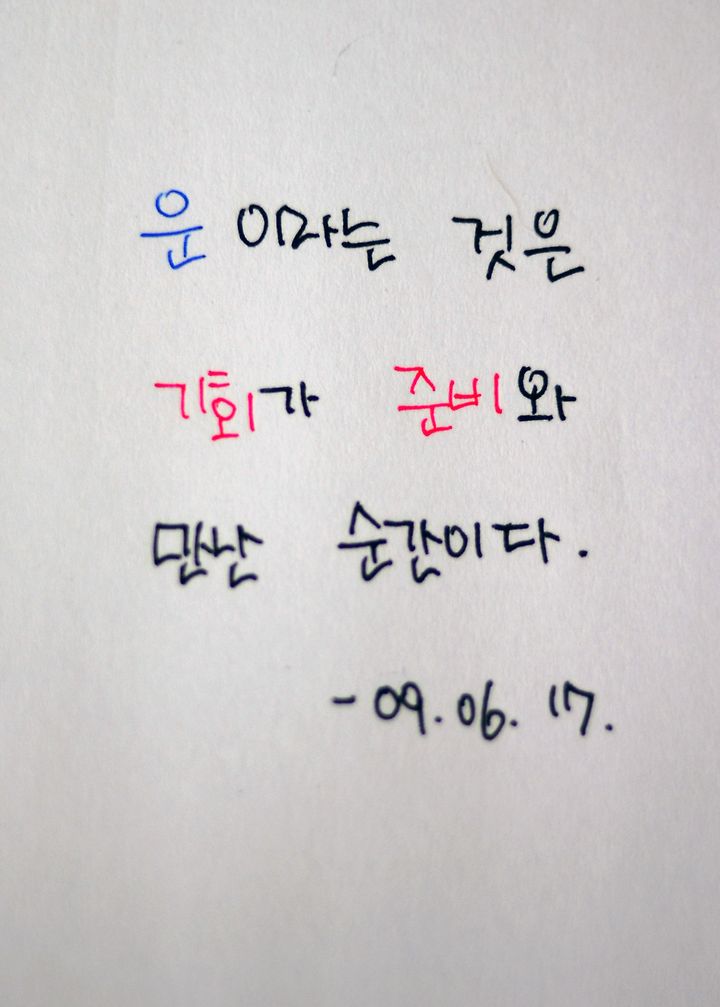 운 이라는 것은
기회가 준비와
만난 순간이다.
- 09. 06. 17.